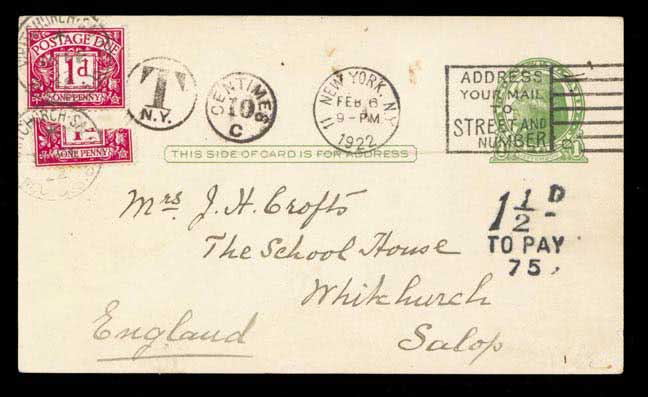 POSTAGE DUE
1d
ONE PENNY
1d
ONE PENNY
WHITCHURCH-SALOP
T
N.Y.
CENTIMES
10
C
NEW YORK, N.Y.
11
FEB 6
9-PM
1922
ADDRESS
YOUR MAIL
TO
STREET AND
NUMBER
THIS SIDE OF CARD IS FOR ADDRESS
1 1/2 D
TO PAY
75
Mrs. J. H. Crofts
The School House
Whitchurch
England
Salop